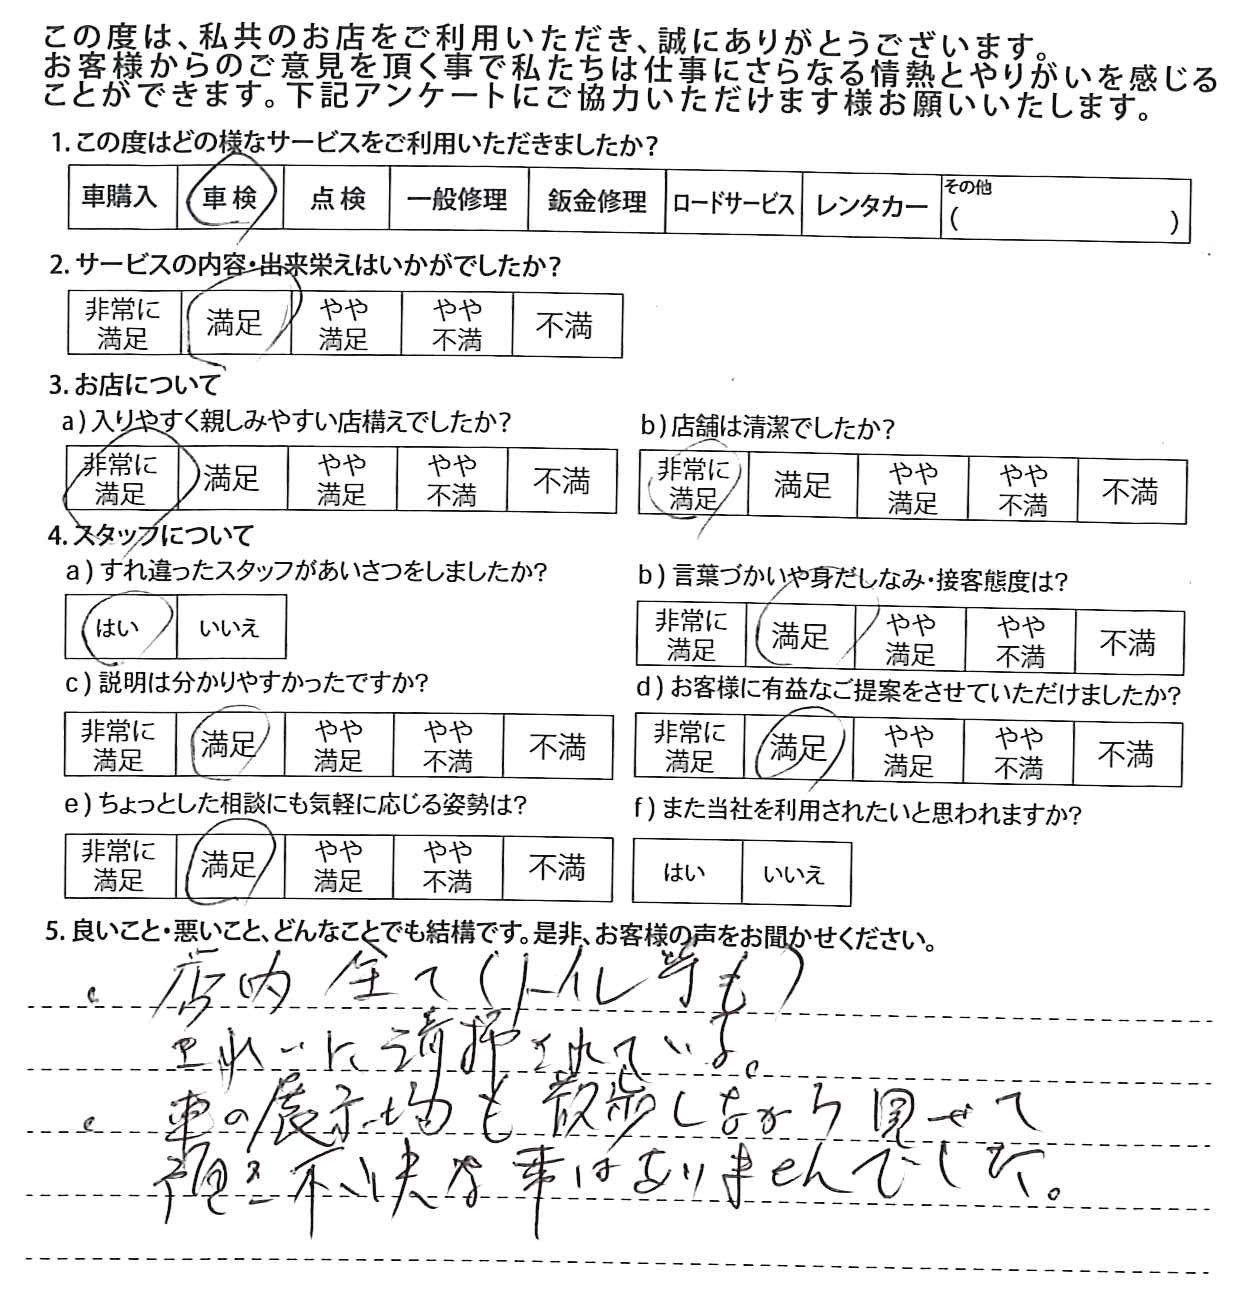 この度は、私共のお店をご利用いただき、誠にありがとうございます。
お客様からのご意見を頂く事で私たちは仕事にさらなる情熱とやりがいを感じる
ことができます。下記アンケートにご協力いただけます様お願いいたします。
1.この度はどの様なサービスをご利用いただきましたか?
車購入 車検 点検 一般修理 鈑金修理 ロードサービス レンタカー その他
( )
2.サービスの内容・出来栄えはいかがでしたか?
非常に満足 満足 やや満足 やや不満 不満
3.お店について
a)入りやすく親しみやすい店構えでしたか?
非常に満足 満足 やや満足 やや不満 不満
b)店舗は清潔でしたか?
非常に満足 満足 やや満足 やや不満 不満
4.スタッフについて
a)すれ違ったスタッフがあいさつをしましたか?
はい いいえ
b)言葉づかいや身だしなみ・接客態度は?
非常に満足 満足 やや満足 やや不満 不満
c)説明は分かりやすかったですか?
非常に満足 満足 やや満足 やや不満 不満
d)お客様に有益なご提案をさせていただけましたか?
非常に満足 満足 やや満足 やや不満 不満
e)ちょっとした相談にも気軽に応じる姿勢は?
非常に満足 満足 やや満足 やや不満 不満
f)また当社を利用されたいと思われますか?
はい いいえ
5.良いこと・悪いこと、どんなことでも結構です。是非、お客様の声をお聞かせください。
店内 全て(トイレ等も)
きれいに清掃されている。
車の展示場も 散歩しながら 見せて
不快な事はありませんでした。